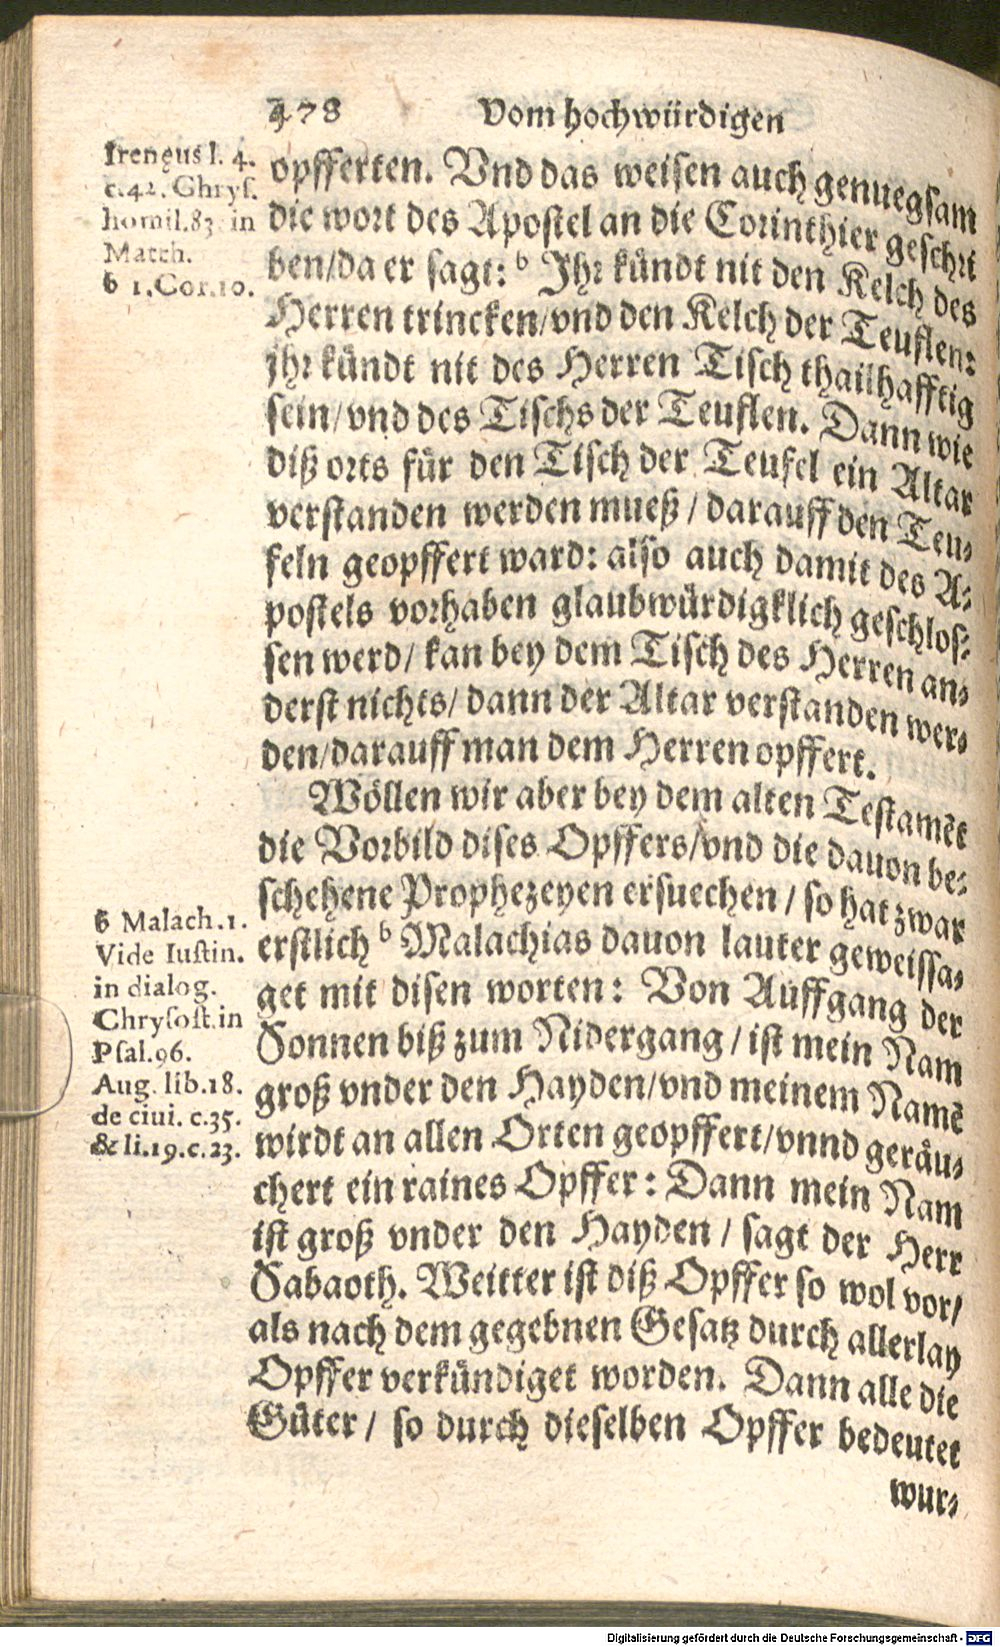 478 Vom hochwürdigen
Irenęus l. 4.
c.42. Chrys.
homil.83. in
Matth.
b 1.Cor.10.
opfferten. Vnd das weisen auch genuegsam
die wort des Apostel an die Corinthier geschri
ben/da er sagt: b Jhr kündt nit den Kelch des
Herren trincken/vnd den Kelch der Teuflen:
jhr kündt nit des Herren Tisch thailhafftig
sein/vnd des Tischs der Teuflen. Dann wie
diß orts für den Tisch der Teufel ein Altar
verstanden werden mueß/darauff den Teu-
feln geopffert ward: also auch damit des A-
postels vorhaben glaubwürdigklich geschlos-
sen werd/kan bey dem Tisch des Herren an-
derst nichts/dann der Altar verstanden wer-
den/darauff man dem Herren opffert.
Wöllen wir aber bey dem alten Testamẽt
die Vorbild dises Opffers/vnd die dauon be-
schehene Prophezeyen ersuechen/so hat zwar
erstlich b Malachias dauon lauter geweissa-
get mit disen worten: Von Auffgang der
Sonnen biß zum Nidergang/ist mein Nam
groß vnder den Hayden/vnd meinem Namẽ
wirdt an allen Orten geopffert/vnnd geräu-
chert ein raines Opffer: Dann mein Nam
ist groß vnder den Hayden/sagt der Herr
Sabaoth. Weitter ist diß Opffer so wol vor/
als nach dem gegebnen Gesatz durch allerlay
Opffer verkündiget worden. Dann alle die
Güter/so durch dieselben Opffer bedeutet
wur-
b Malach.1.
Vide Iustin.
in dialog.
Chrysost.in
Psal.96.
Aug. lib.18.
de ciui. c.35.
& li.19.c.23.
Digitalisierung gefördert durch die Deutsche Forschungsgemeinschaft - DFG